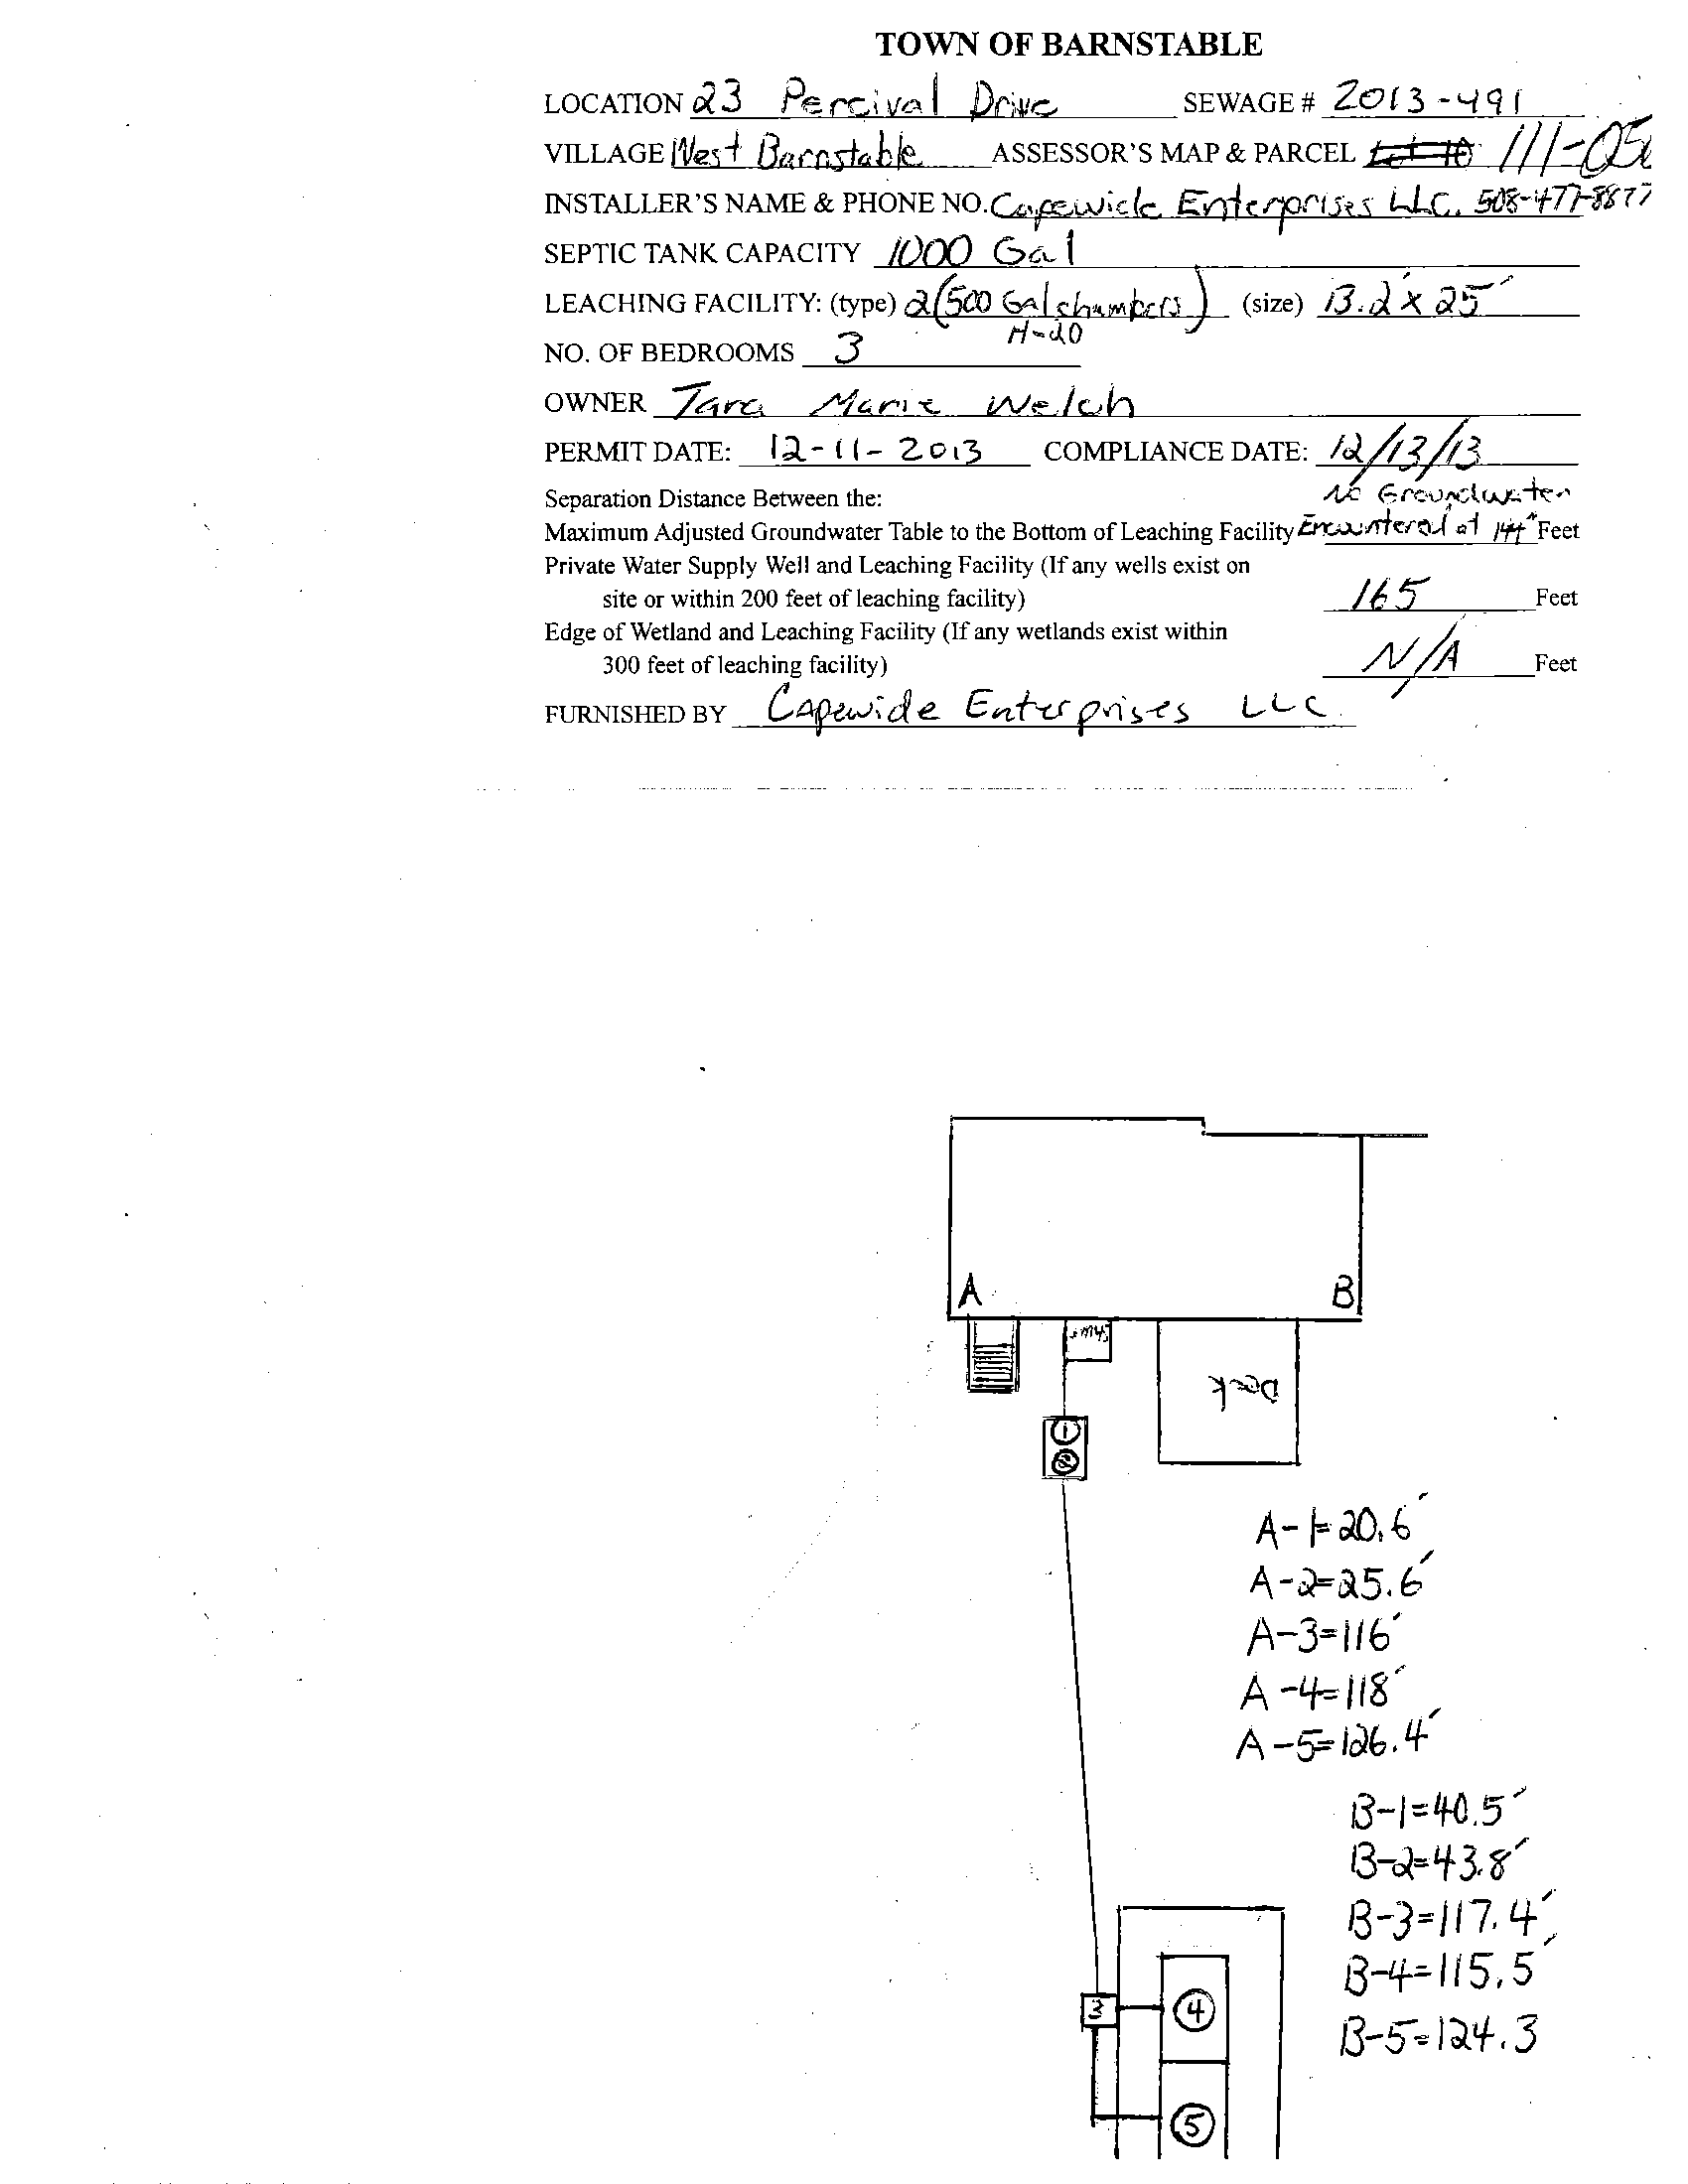 TOWN OF BARNSTABLE
LOCATION 23 Percival Drive SEWAGE # 2013-491
VILLAGE West Barnstable ASSESSOR'S MAP & PARCEL 111-05
INSTALLER'S NAME & PHONE NO. Capewide Enterprises LLC. 508-477-8877
SEPTIC TANK CAPACITY 1000 Gal
LEACHING FACILITY: (type) 2(500 Gal chambers) (size) 13.2' x 25'
H-20
NO. OF BEDROOMS 3
OWNER Tara Marie Welch
PERMIT DATE: 12-11-2013 COMPLIANCE DATE: 12/13/13
Separation Distance Between the:
No Groundwater
Maximum Adjusted Groundwater Table to the Bottom of Leaching Facility Encountered at 144" Feet
Private Water Supply Well and Leaching Facility (If any wells exist on
site or within 200 feet of leaching facility) 165 Feet
Edge of Wetland and Leaching Facility (If any wetlands exist within
300 feet of leaching facility) N/A Feet
FURNISHED BY Capewide Enterprises LLC.
A B
Deck
1
2
A-1=20.6'
A-2=25.6'
A-3=116'
A-4=118'
A-5=126.4'
B-1=40.5'
B-2=43.8'
B-3=117.4'
B-4=115.5'
3 4
B-5=124.3
5